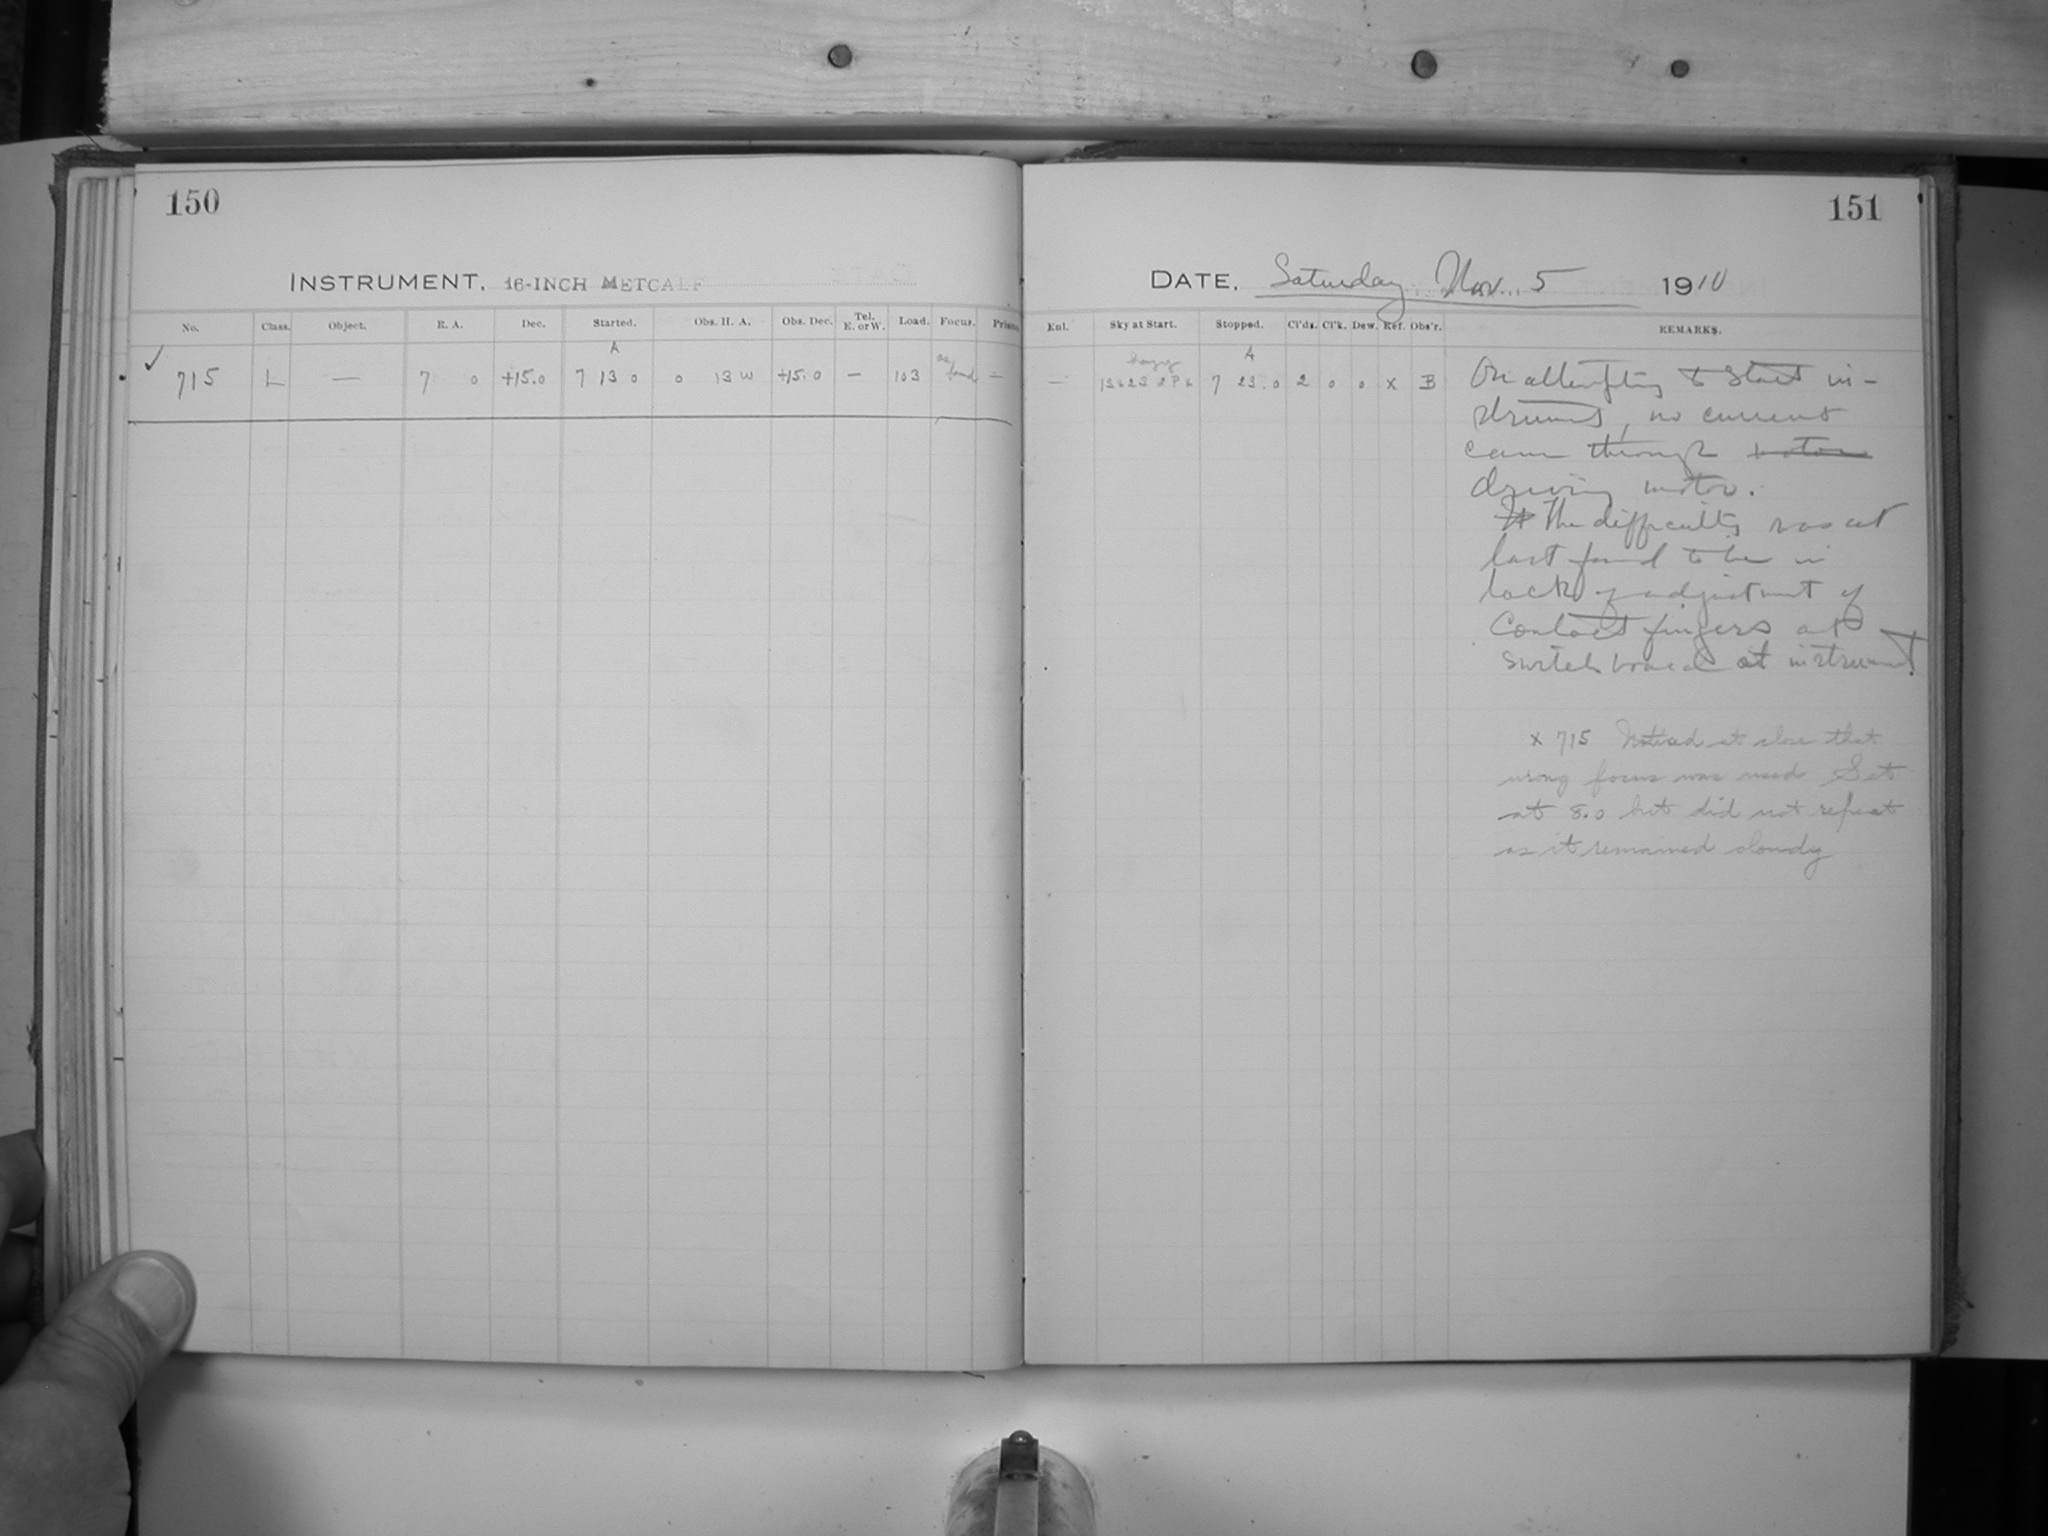 150
151
INSTRUMENT, 16-INCH METCALF
DATE, Saturday Nov. 5 1910
No. Class. Object. R. A. Dec. Started. Obs. H. A. Obs. Dec. Tel. E. or W. Load. Focus. Prism
Enl. Sky at Start. Stopped. Cl'ds. Cl'k. Dew. Ref. Obs'r. REMARKS.
✓ 715 L — 7 0 +15.0 A 7 13 0 0 13 W +15.0 — 103 as found —
— A 7 23.0 2 0 0 x B
On attempting to start in-
strument, no current
came through motor
driving motor.
It The difficulty was at
last found to be in
lack of adjustment of
contact fingers at
switch board at instrument.
x 715 Noticed at close that
wrong focus was used Set
at 8.0 but did not repeat
as it remained cloudy